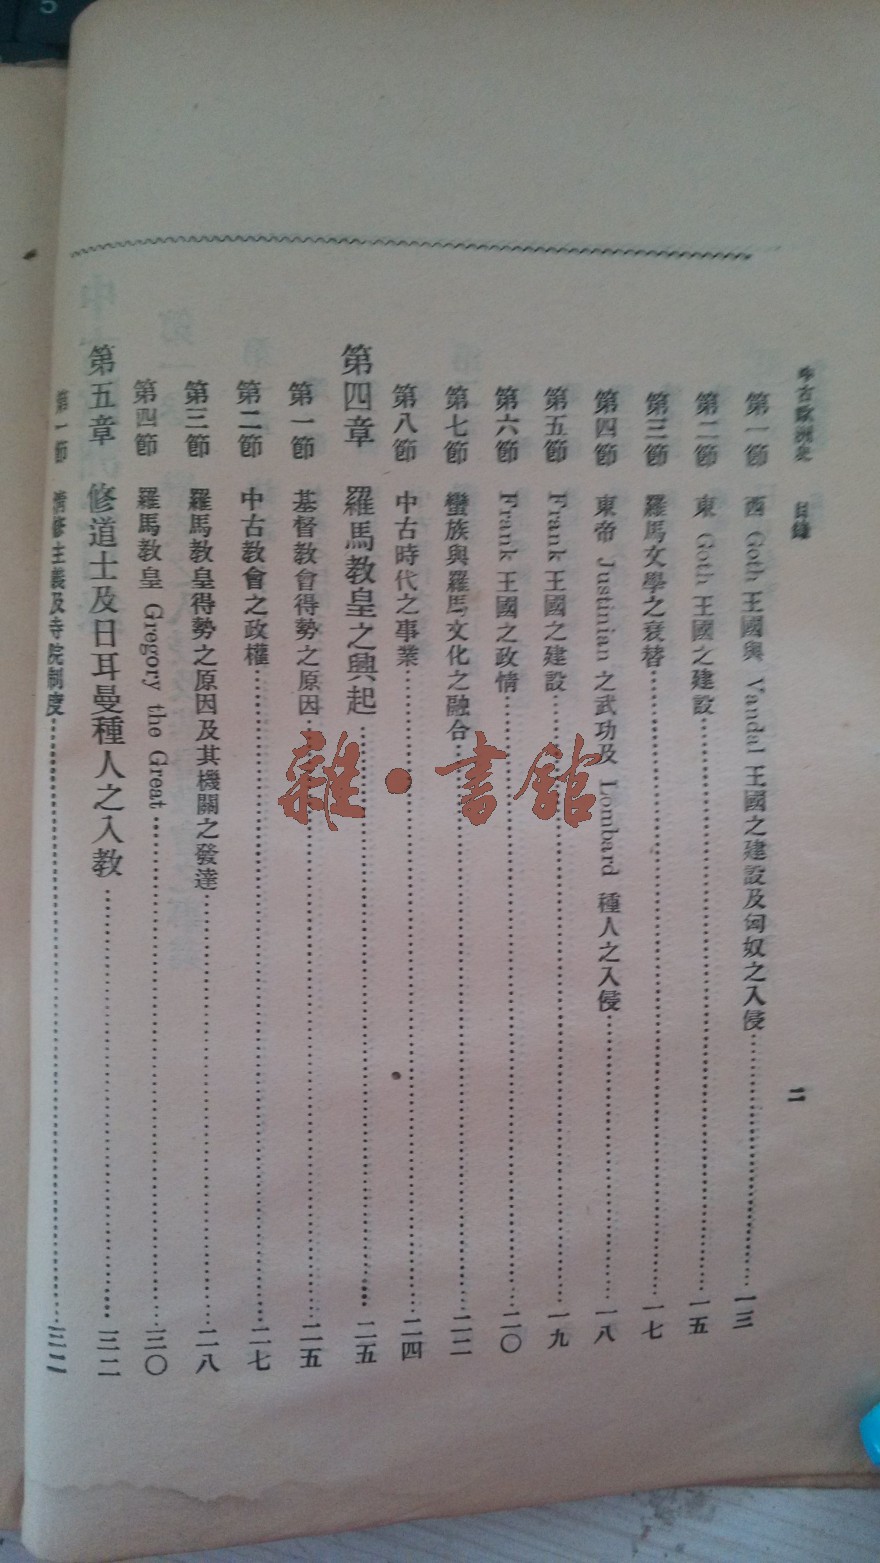 中古歐洲史 目錄 二
第一節 西 Goth 王國與 Vandal 王國之建設及匈奴之入侵 一三
第二節 東 Goth 王國之建設 一五
第三節 羅馬文學之衰替 一七
第四節 東帝 Justinian 之武功及 Lombard 種人之入侵 一八
第五節 Frank 王國之建設 一九
第六節 Frank 王國之政情 二〇
第七節 蠻族與羅馬文化之融合 二二
第八節 中古時代之事業 二四
第四章 羅馬教皇之興起 二五
第一節 基督教會得勢之原因 二五
第二節 中古教會之政權 二七
第三節 羅馬教皇得勢之原因及其機關之發達 二八
第四節 羅馬教皇 Gregory the Great 三〇
第五章 修道士及日耳曼種人之入教 三二
第一節 清修主義及寺院制度 三二
雜·書館